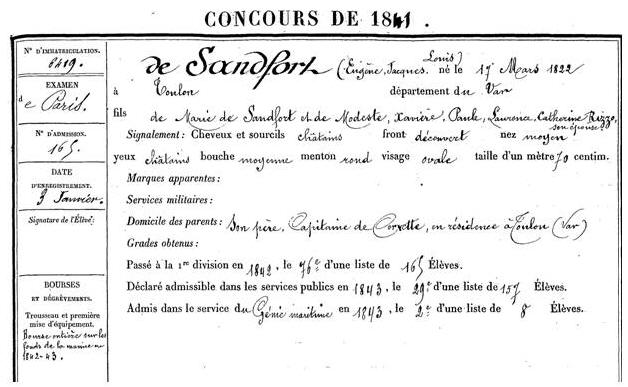 CONCOURS DE 1841.
N° D'IMMATRICULATION.
8419.
EXAMEN
de Paris.
N° D'ADMISSION.
165.
DATE
D'ENREGISTREMENT.
9 Janvier.
Signature de l'Élève:
BOURSES
ET DÉGRÈVEMENTS.
Trousseau et première
mise d'équipement.
Bourse entière sur les
fonds de la marine en
1842-43.
de Sandfort (Eugène, Jacques, Louis) né le 17 Mars 1822
à Toulon département du Var
fils de Marie de Sandfort et de Modeste, Xavière, Paule, Laurence, Catherine Rizzo,
son épouse
Signalement: Cheveux et sourcils châtains front découvert nez moyen
yeux châtains bouche moyenne menton rond visage ovale taille d'un mètre 70 centim.
Marques apparentes:
Services militaires:
Domicile des parents: Son père, Capitaine de Corvette, en résidence à Toulon (Var)
Grades obtenus:
Passé à la 1re division en 1842, le 76e d'une liste de 165 Élèves.
Déclaré admissible dans les services publics en 1843, le 29e d'une liste de 157 Élèves.
Admis dans le service du Génie maritime en 1843, le 2e d'une liste de 8 Élèves.